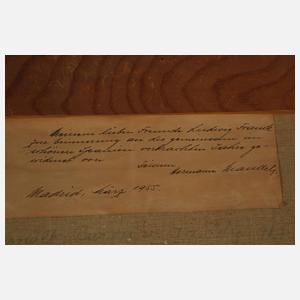 Meinem lieben Freunde Ludwig Freude
zur Erinnerung an die gemeinsam im
schönen Spanien verbrachten Jahre ge-
widmet von
Hermann
Madrid, März 1955.